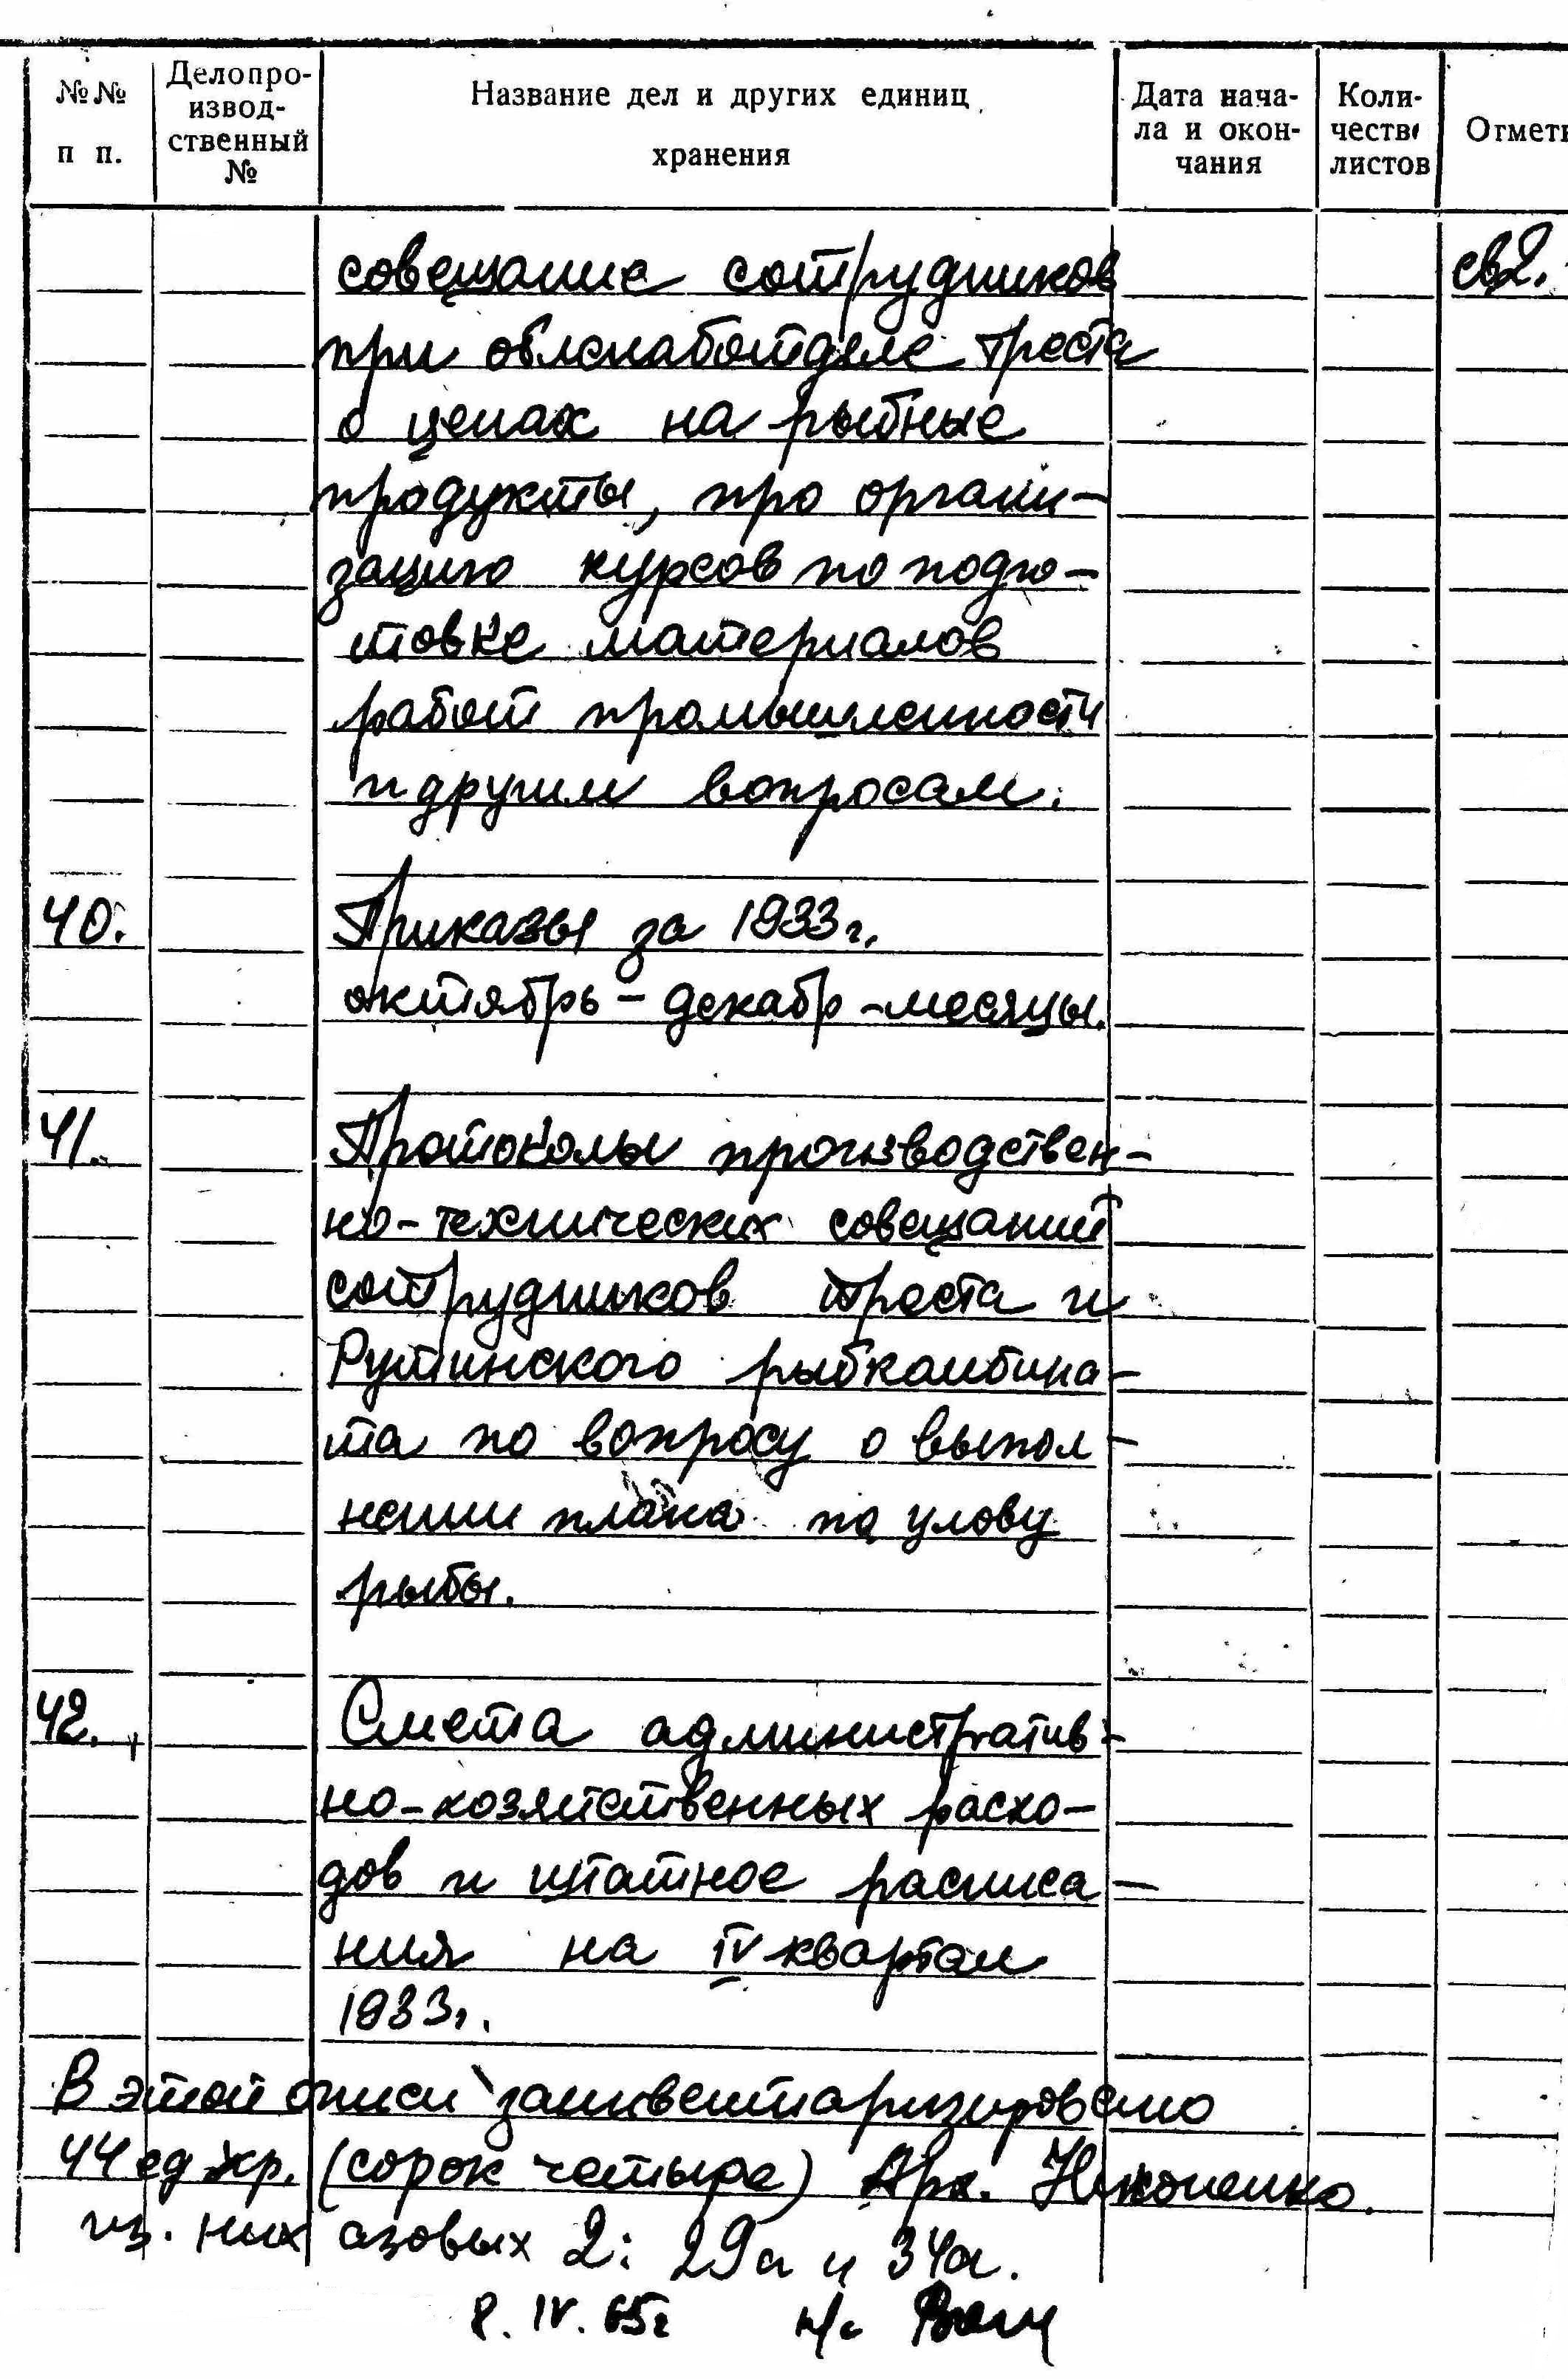 №№ п п.
Делопро-
извод-
ственный
№
Название дел и других единиц
хранения
Дата нача-
ла и окон-
чания
Коли-
честв
листов
Отмет
совещание сотрудников
св2.
при облснаботделе треста
о ценах на рыбные
продукты, про органи-
зацию курсов по подго-
товке материалов
работ промышленности
и другим вопросам.
40. Приказы за 1933 г.
октябрь - декабр - месяцы.
41. Протоколы производствен-
но-технических совещаний
сотрудников треста и
рыбкомбина-
та по вопросу о выпол-
нении плана по улову
рыбы.
42. Смета административ-
но-хозяйственных расхо-
дов и штатное расписа-
ния на IV квартал
1933 г.
В этой описи заинвентаризировано
44 ед хр. (сорок четыре) Арх.
из. них азовых 2: 29а и 34а.
8. IV. 65г